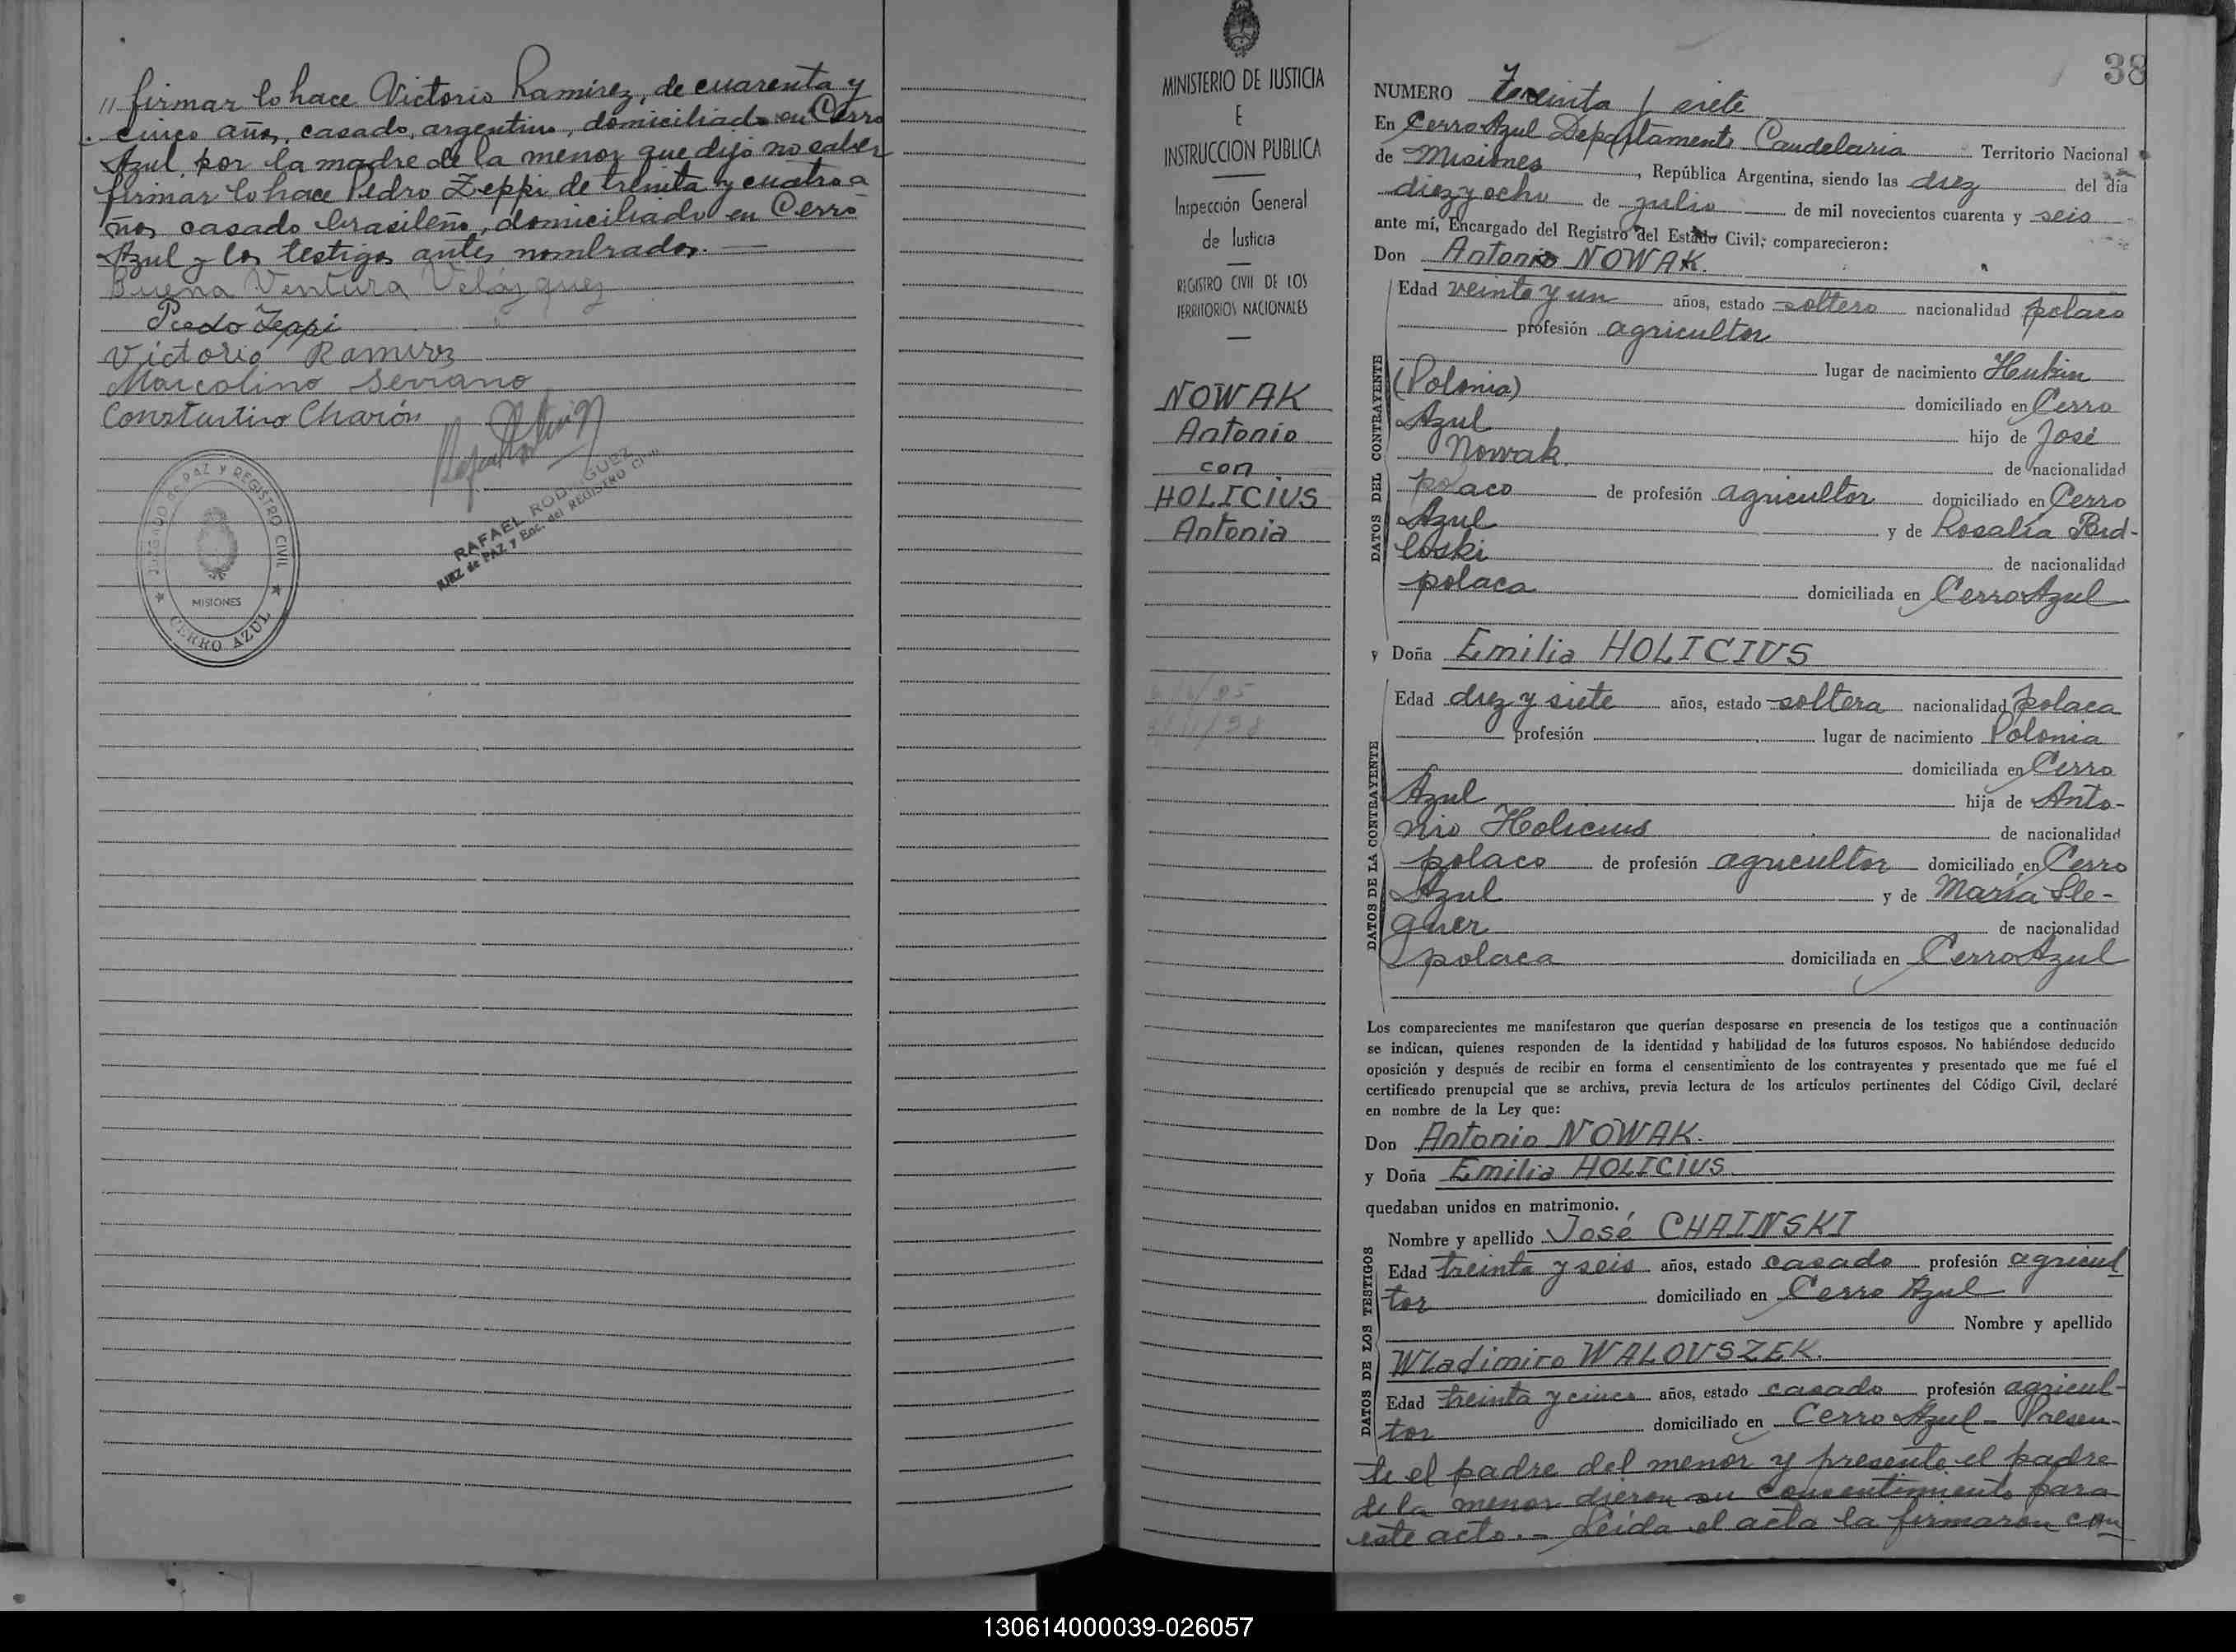 // firmar lo hace Victorio Ramirez, de cuarenta y
cinco años, casado, argentino, domiciliado en Cerro
Azul, por la madre de la menor que dijo no saber
firmar lo hace Pedro Zeppi de treinta y cuatro a
ños casado brasileño, domiciliado en Cerro
Azul y los testigos antes nombrados.
Buena Ventura Velázquez
Pedo Zeppi
Victorio Ramirez
Marcolino Serrano
Constantino Charón
JUZGADO DE PAZ Y REGISTRO CIVIL
MISIONES
CERRO AZUL
RAFAEL RODRIGUEZ
JUEZ de PAZ y Enc. del REGISTRO CIVIL
MINISTERIO DE JUSTICIA
E
INSTRUCCION PUBLICA
Inspección General
de Justicia
REGISTRO CIVIL DE LOS
TERRITORIOS NACIONALES
NOWAK
Antonio
con
HOLICIUS
Antonia
38
NUMERO Treinta y siete
En Cerro Azul Departamento Candelaria Territorio Nacional
de Misiones, República Argentina, siendo las diez del día
diez y ocho de julio de mil novecientos cuarenta y seis
ante mí, Encargado del Registro del Estado Civil, comparecieron:
Don Antonio NOWAK.
DATOS DEL CONTRAYENTE
Edad veinte y un años, estado soltero nacionalidad polaco
profesión agricultor
lugar de nacimiento
(Polonia) domiciliado en Cerro
Azul hijo de José
Nowak de nacionalidad
polaco de profesión agricultor domiciliado en Cerro
Azul y de Rosalía
de nacionalidad
polaca domiciliada en Cerro Azul
y Doña Emilia HOLICIUS
DATOS DE LA CONTRAYENTE
Edad diez y siete años, estado soltera nacionalidad polaca
profesión lugar de nacimiento Polonia
domiciliada en Cerro
Azul hija de Anto-
nio Holicius de nacionalidad
polaco de profesión agricultor domiciliado en Cerro
Azul y de María Sle-
gner de nacionalidad
polaca domiciliada en Cerro Azul
Los comparecientes me manifestaron que querían desposarse en presencia de los testigos que a continuación
se indican, quienes responden de la identidad y habilidad de los futuros esposos. No habiéndose deducido
oposición y después de recibir en forma el consentimiento de los contrayentes y presentado que me fué el
certificado prenupcial que se archiva, previa lectura de los artículos pertinentes del Código Civil, declaré
en nombre de la Ley que:
Don Antonio NOWAK.
y Doña Emilia HOLICIUS
quedaban unidos en matrimonio.
DATOS DE LOS TESTIGOS
Nombre y apellido José CHAINSKI
Edad treinta y seis años, estado casado profesión agricul
tor domiciliado en Cerro Azul
Nombre y apellido
Wladimiro WALOUSZEK.
Edad treinta y cinco años, estado casado profesión agricul-
tor domiciliado en Cerro Azul - Presen-
te el padre del menor y presente el padre
de la menor dieron su consentimiento para
este acto. - Leida el acta la firmaron con
130614000039-026057